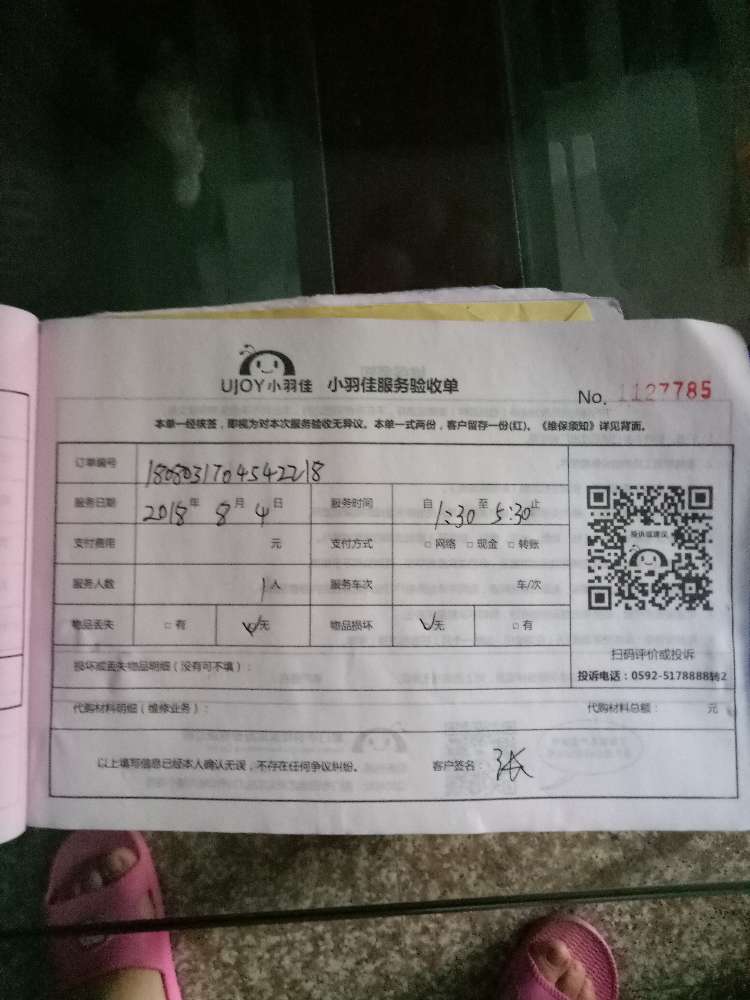 UJOY小羽佳 小羽佳服务验收单
No. 1127785
本单一经核签，即视为对本次服务验收无异议。本单一式两份，客户留存一份(红)。《维保须知》详见背面。
订单编号 1808031704542218
服务日期 2018年 8月 4日 服务时间 自 1:30 至 5:30 止
支付费用 元 支付方式 □ 网络 □ 现金 □ 转账
服务人数 1人 服务车次 车/次
物品丢失 □ 有 ✓无 物品损坏 ✓无 □ 有
投诉或建议
扫码评价或投诉
投诉电话：0592-5178888转2
损坏或丢失物品明细（没有可不填）：
代购材料明细（维修业务）： 代购材料总额： 元
以上填写信息已经本人确认无误，不存在任何争议纠纷。 客户签名：张